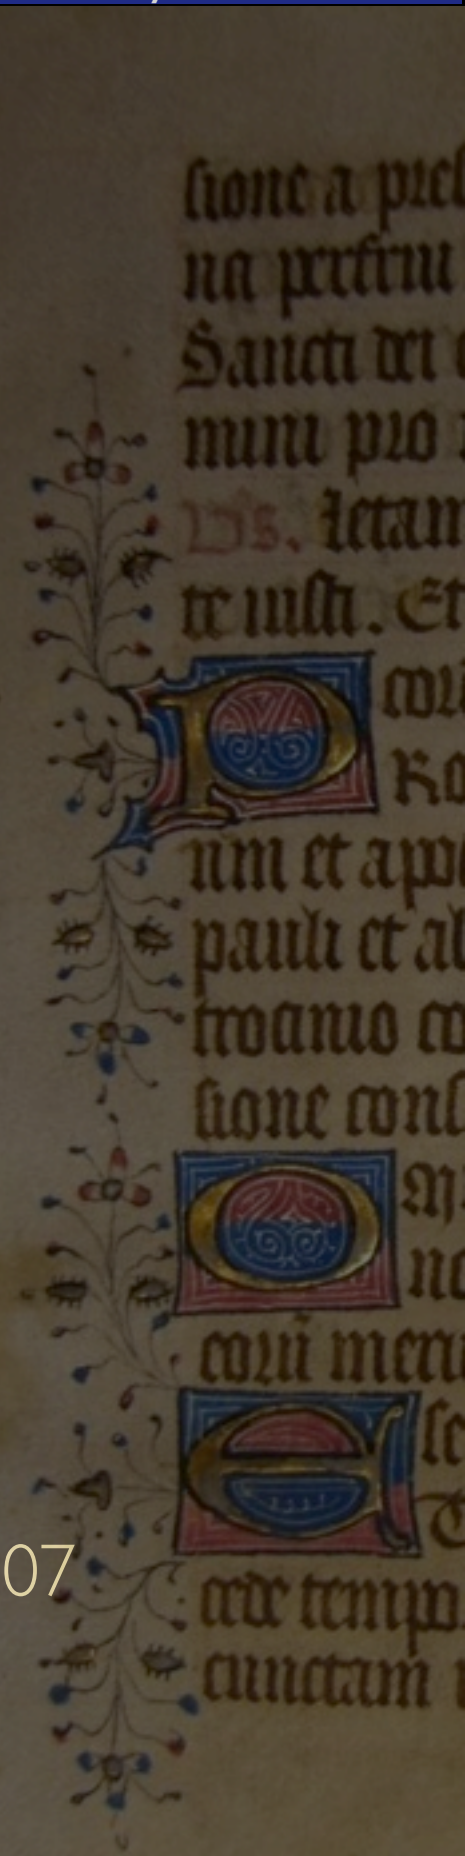 sione a pres
na perfrui
Sancti dei
mini pro
Vs. letam
te iusti. Et
P corū
Ro
um et apos
pauli et al
trocinio co
sione cons
O
no
corū meri
E se
cede tempo
cunctam
07